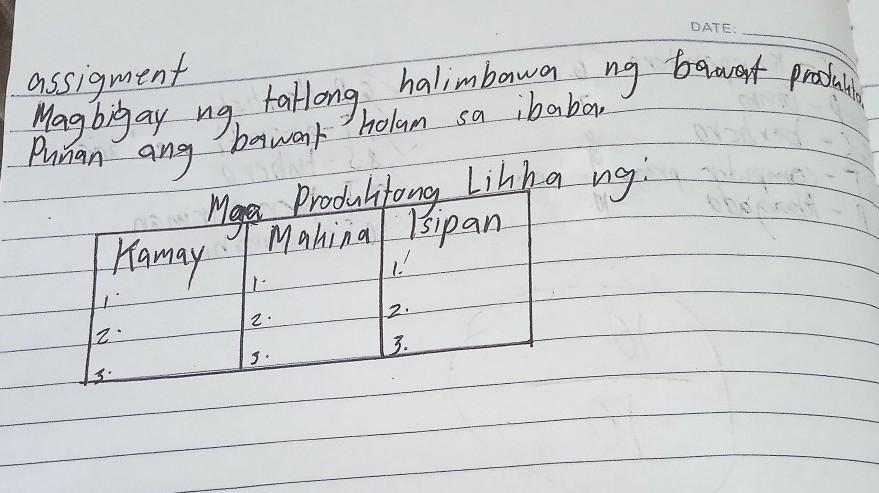 DATE:
assigment
Magbigay ng tatlong halimbawa ng bawat produkto
Punan ang bawat kolam sa ibaba.
Mga Produktong Likha ng:
Kamay Makina Isipan
1. 1. 1.
2. 2. 2.
3. 3. 3.